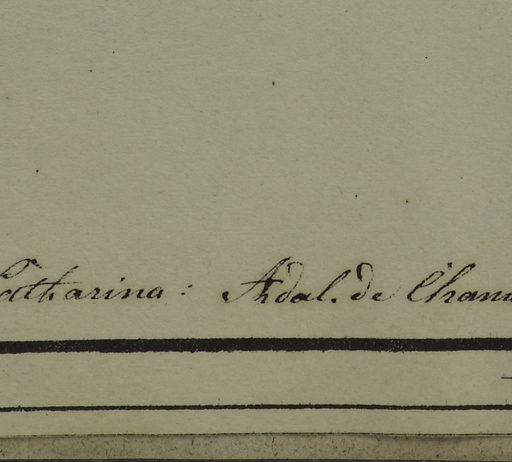 Catharina: Adal. de Cham